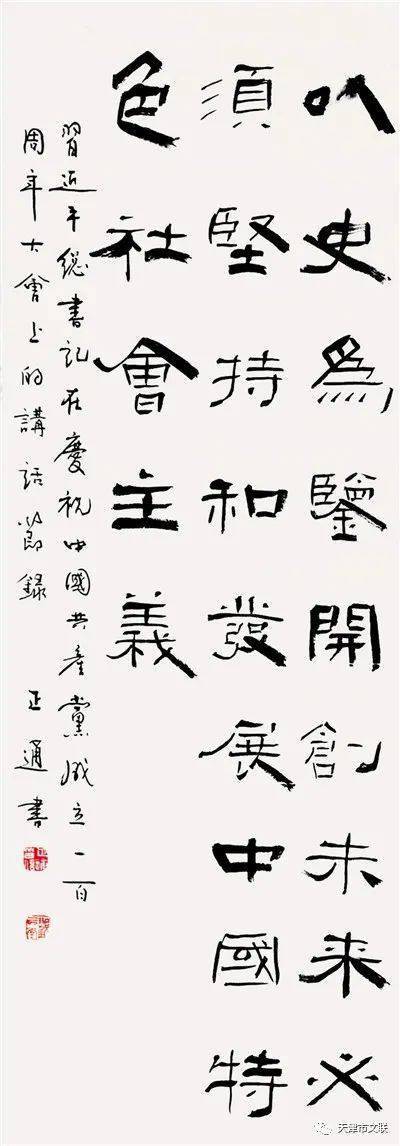 以史為鑒開創未来必
須堅持和發展中國特
色社會主義
習近平總書記在慶祝中國共產黨成立一百
周年大會上的講話節録 正通書
天津市文联